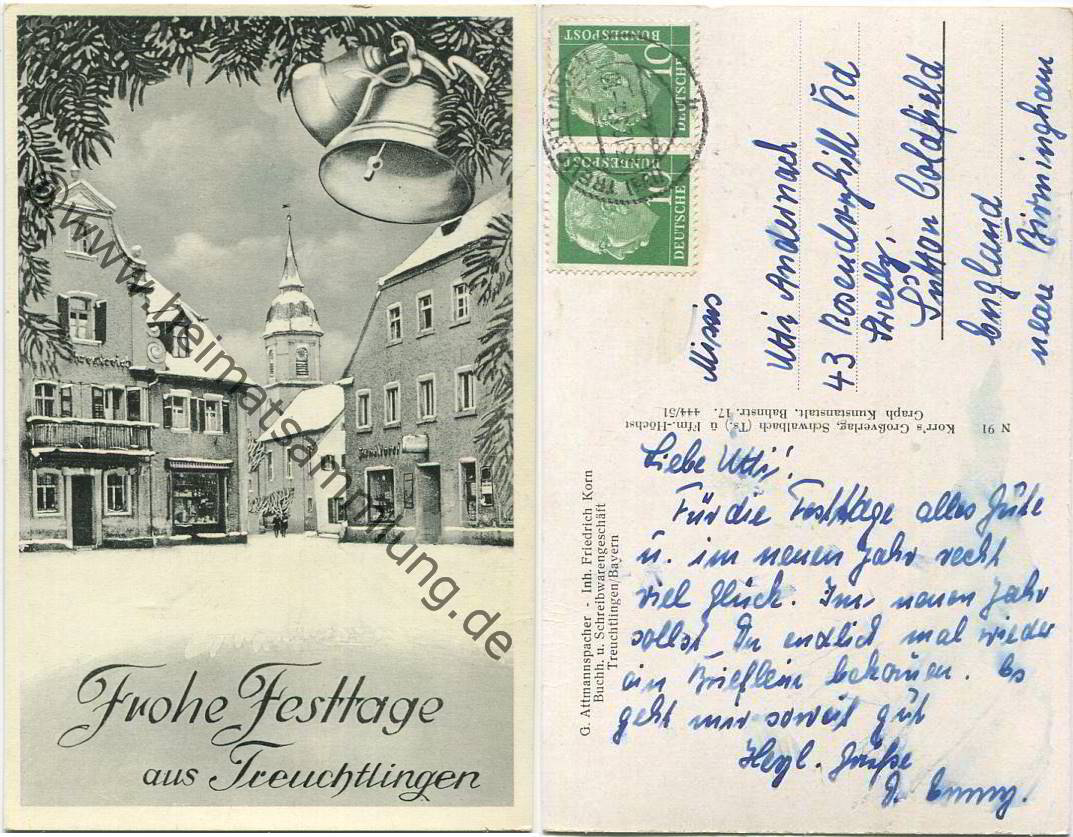 Frohe Festtage
aus Treuchtlingen
© www.heimatsammlung.de
10
DEUTSCHE
BUNDESPOST
10
DEUTSCHE
BUNDESPOST
Utti Andernach
43 Rosendryhill Rd
Streetly,
Sutton Coldfield
England
neare Birmingham
N 91 Korr's Großverlag, Schwalbach (Ts.) ü Ffm.-Höchst
Graph Kunstanstalt, Bahnstr. 17. 444/51
G. Attmannspacher - Inh. Friedrich Korn
Buchh. u. Schreibwarengeschäft
Treuchtlingen/Bayern
Liebe Utti!
Für die Festtage alles Gute
u. im neuen Jahr recht
viel Glück. Im neuen Jahr
sollst Du endlich mal wieder
ein Brieflein bekommen. Es
geht mir soweit gut
Herzl. Grüße
D. Emmy.